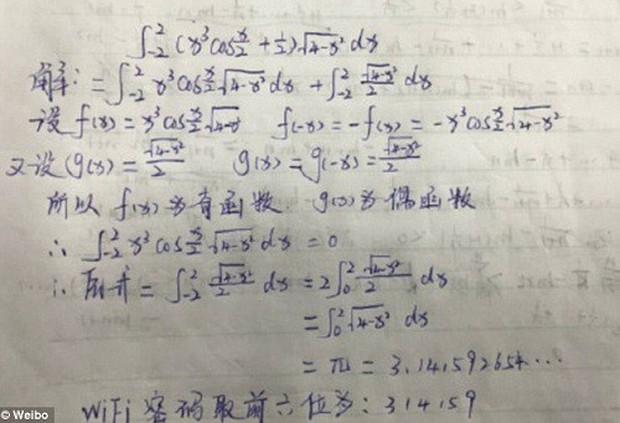 ∫₋₂² (x³cos x/2 + 1/2)√4-x² dx
解: = ∫₋₂² x³cos x/2 √4-x² dx + ∫₋₂² √4-x²/2 dx
设 f(x) = x³cos x/2 √4-x² f(-x) = -f(x) = -x³cos x/2 √4-x²
又设 g(x) = √4-x²/2 g(x) = g(-x) = √4-x²/2
所以 f(x)为奇函数. g(x)为偶函数
∴ ∫₋₂² x³cos x/2 √4-x² dx = 0
∴ 原式 = ∫₋₂² √4-x²/2 dx = 2∫₀² √4-x²/2 dx
= ∫₀² √4-x² dx
= π = 3.141592654...
WiFi 密码取前六位为: 314159
© Weibo